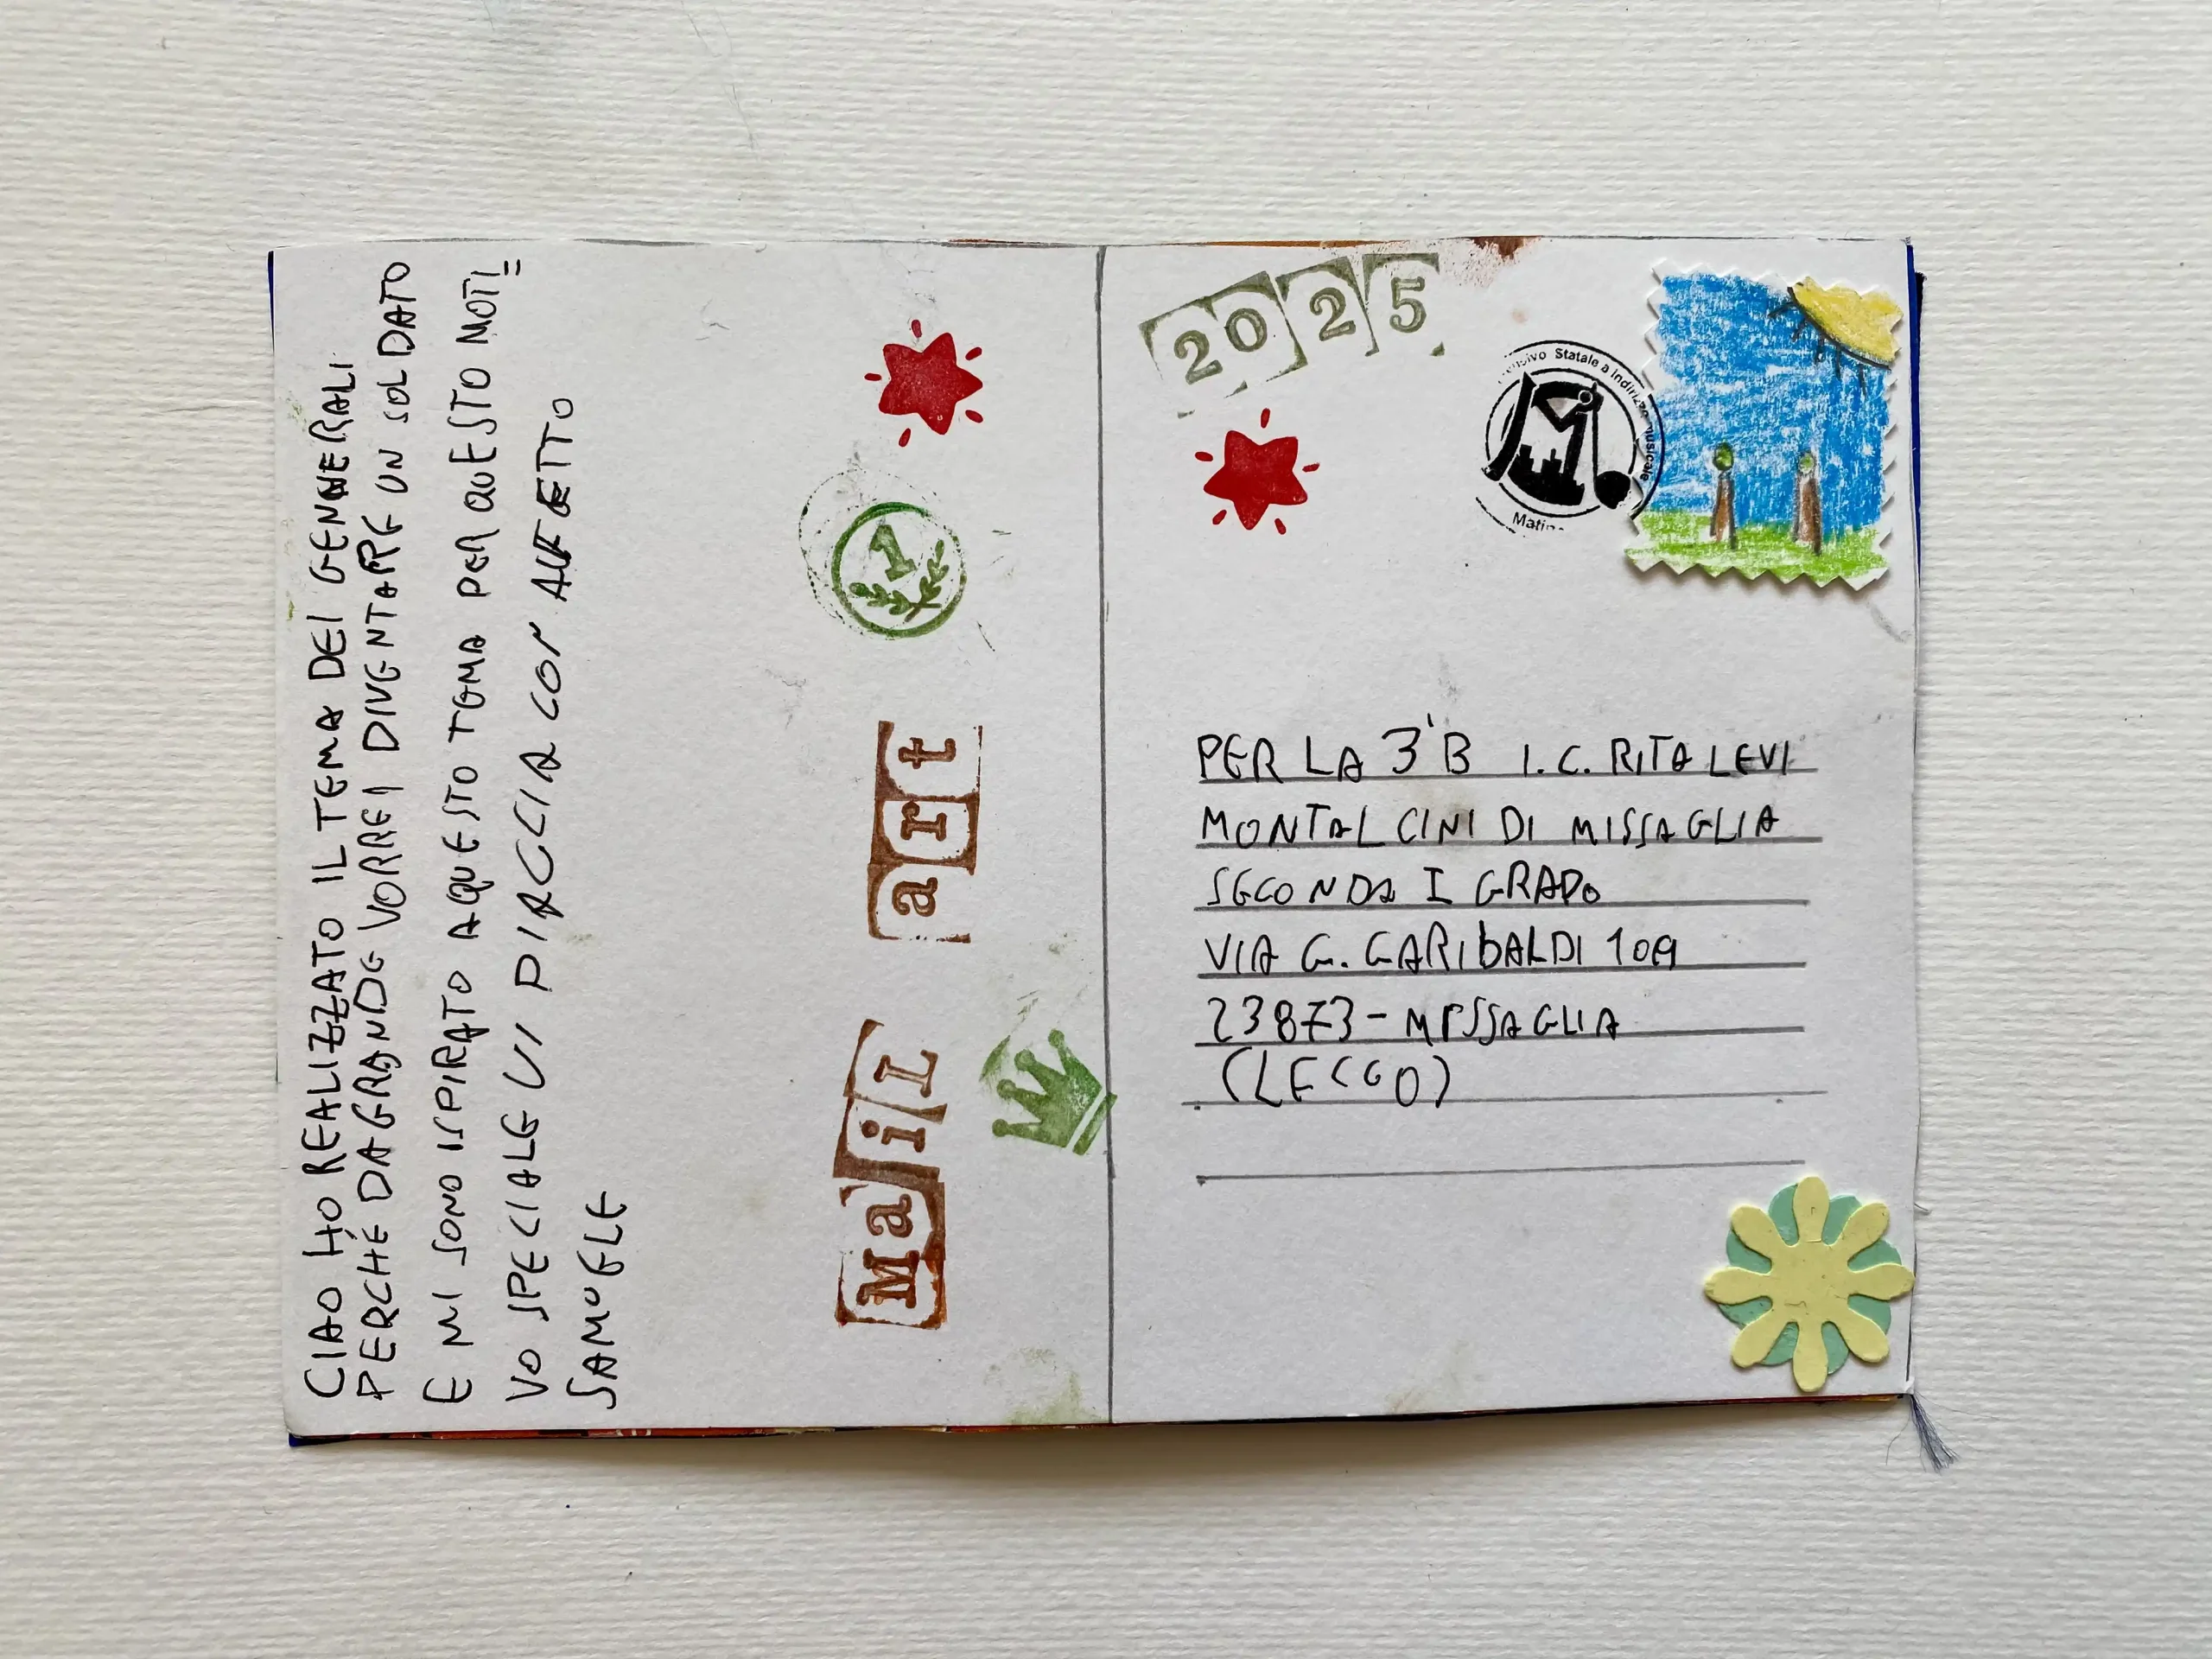 CIAO HO REALIZZATO IL TEMA DEI GENNERALI
PERCHÉ DA GRANDE VORREI DIVENTARE UN SOLDATO
E MI SONO ISPIRATO A QUESTO TEMA PER QUESTO MOTI=
VO SPECIALE VI PIACCIA CON AFFETTO
SAMUELE
Mail art
1
2025
Statale a Indirizzo Musicale
PER LA 3°B I.C. RITA LEVI
MONTALCINI DI MISSAGLIA
SECONDA I GRADO
VIA G. GARIBALDI 109
23873 - MISSAGLIA
(LECCO)